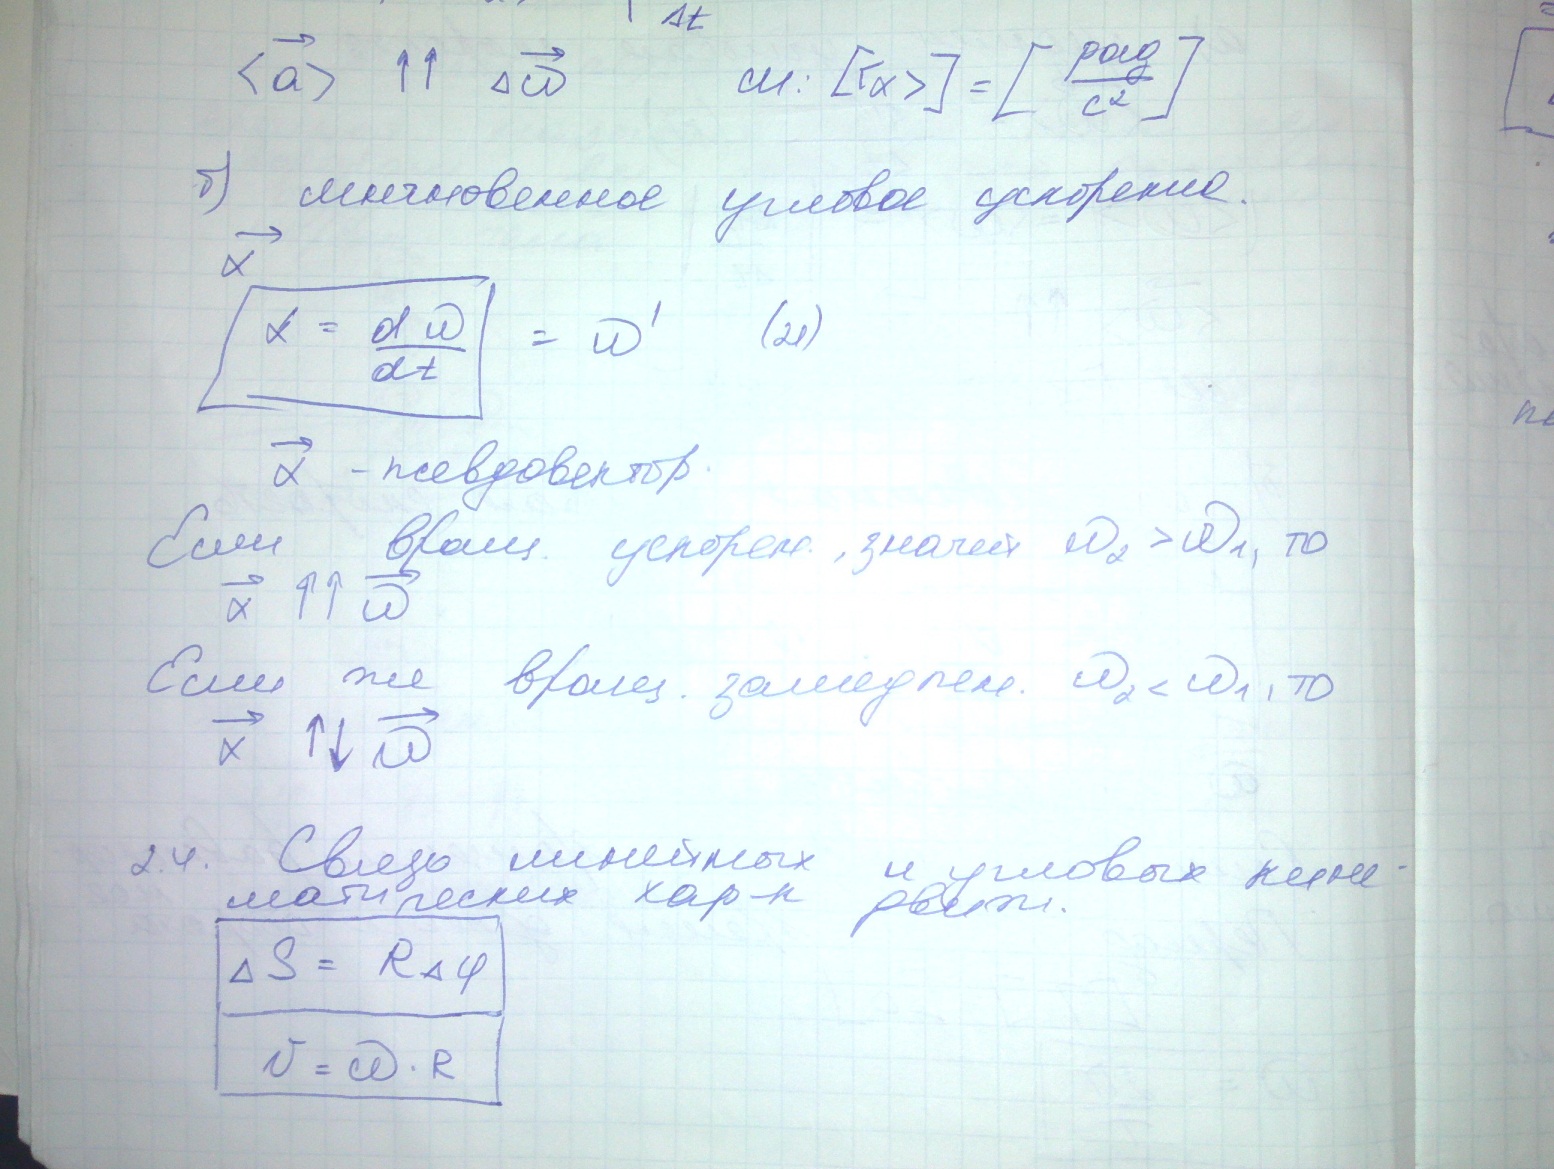 Δt
<a⃗> ↑↑ Δω⃗ си: [<α>] = [рад/с²]
б) мгновенное угловое ускорение.
α⃗
α = dω/dt = ω' (21)
α⃗ - псевдовектор.
Если вращ. ускорен., значит ω₂ > ω₁, то
α⃗ ↑↑ ω⃗
Если же вращ. замедлен. ω₂ < ω₁, то
α⃗ ↑↓ ω⃗
2.4. Связь линейных и угловых кине-
матических хар-к движ.
ΔS = RΔφ
v = ω·R